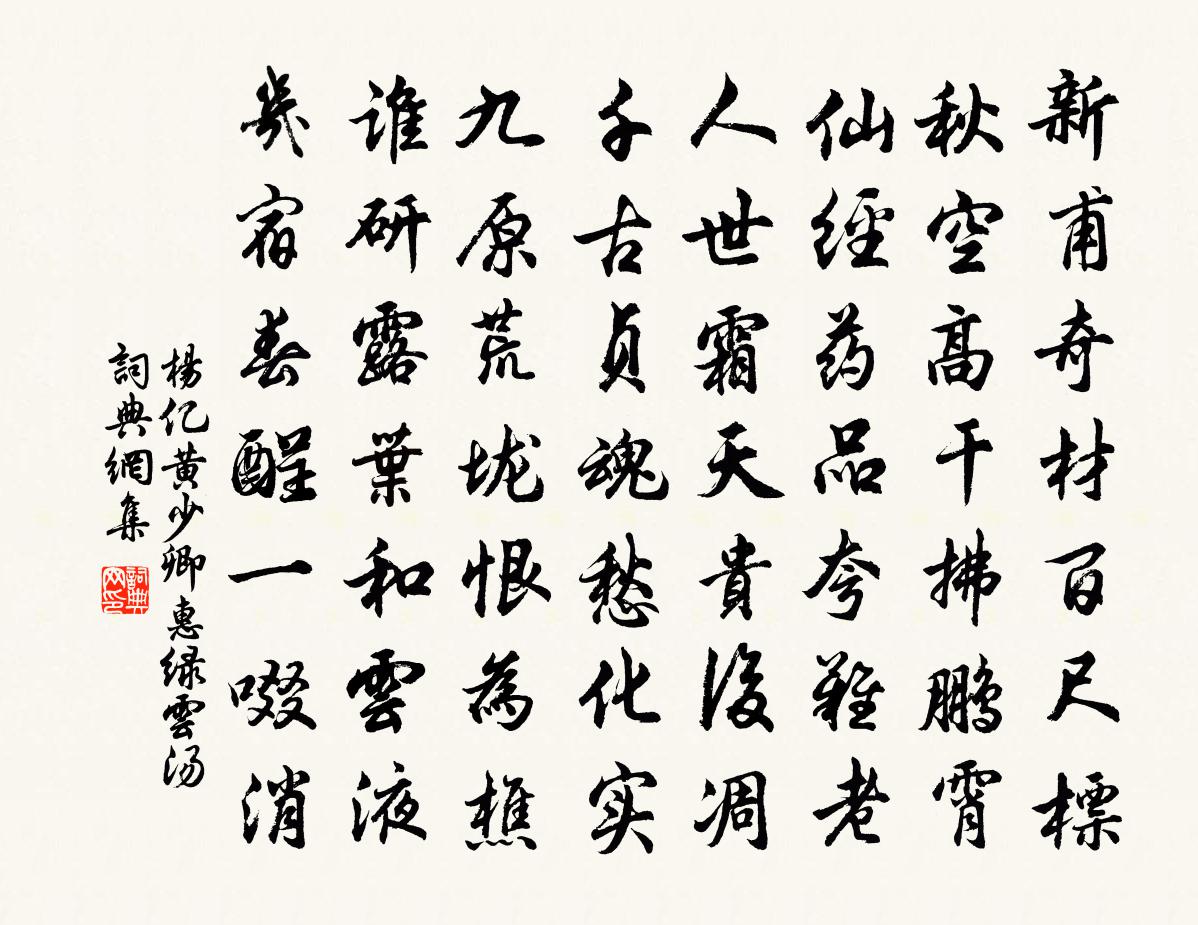 新甫奇材百尺標
秋空高干拂鵬霄
仙經药品夸難老
人世霜天貴後凋
千古貞魂愁化实
九原荒垅恨為樵
谁研露葉和雲液
幾宿春酲一啜消
楊亿黄少卿惠绿雲汤
詞典網集
詞典网印